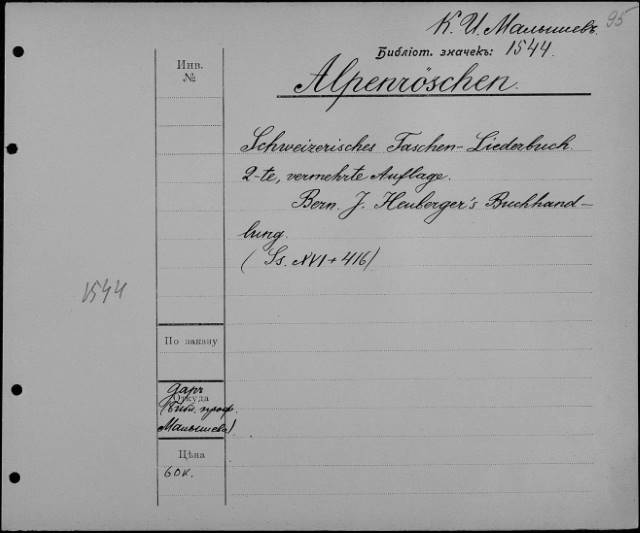 К. И. Малышевъ. 95
Библіот. значекъ: 1544.
Инв. №
Alpenröschen.
Schweizerisches Taschen-Liederbuch.
2-te, vermehrte Auflage.
Bern. J. Heuberger's Buchhand-
lung.
(Ss. XVI + 416)
1544
По заказу
Даръ
Откуда
(Библ. проф.
Малышева)
Цѣна
60к.